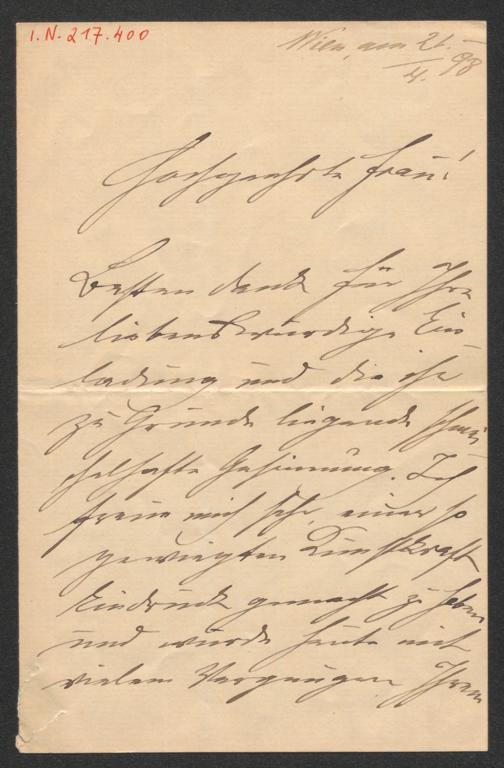 I.N. 217.400
Wien, am 21./4. 98
Hochgeehrte Frau!
Besten Dank für Ihre
liebenswürdige Ein-
ladung und die ihr
zu Grunde liegende schmei-
chelhafte Gesinnung. Ich
freue mich sehr, einer so
gewiegten Kunstkraft
Eindruck gemacht zu haben
und würde heute mit
vielem Vergnügen Ihrem